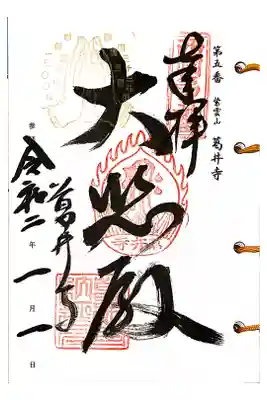 第五番 紫雲山 葛井寺
奉拝
大悲殿
葛井寺
令和二年一月一日